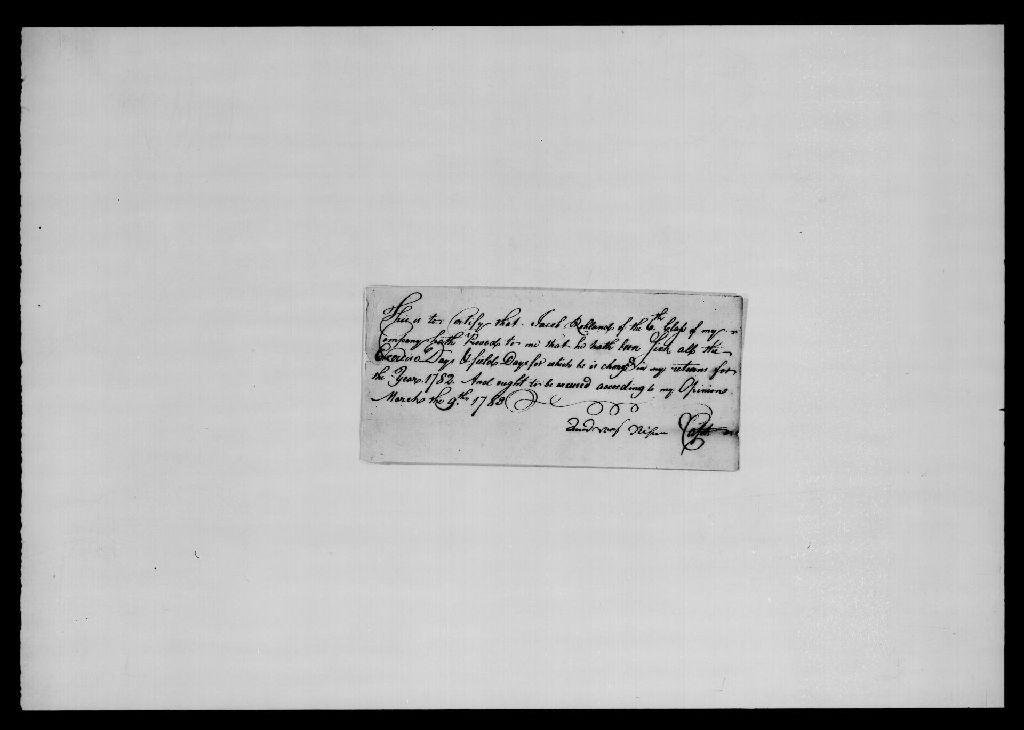 This is to Certify that Jacob Rohland of the 6th Class of my
Company hath Proved to me that he hath been Sick all the
Exercise Days & field Days for which he is chargd in my returns for
the Year 1782 And ought to be excused according to my Opinion
March the 9th 1783
Andreas Captn